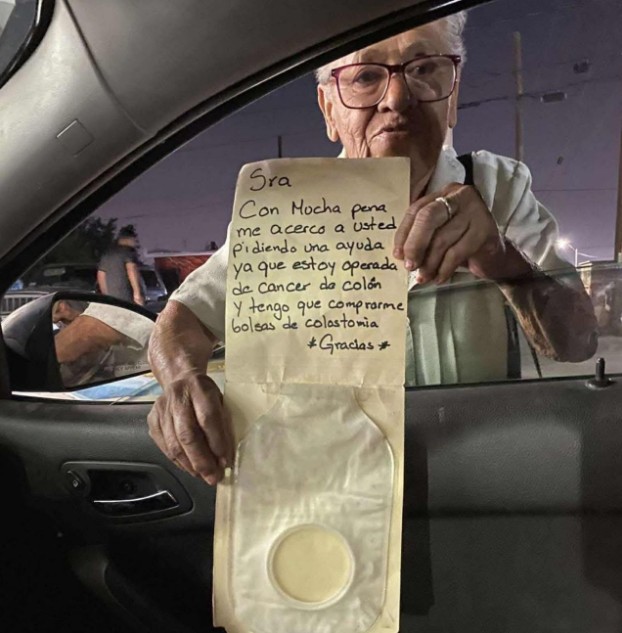 Sra
Con Mucha pena
me acerco a usted
pidiendo una ayuda
ya que estoy operada
de cancer de colón
y tengo que comprarme
bolsas de colostomia
*Gracias*